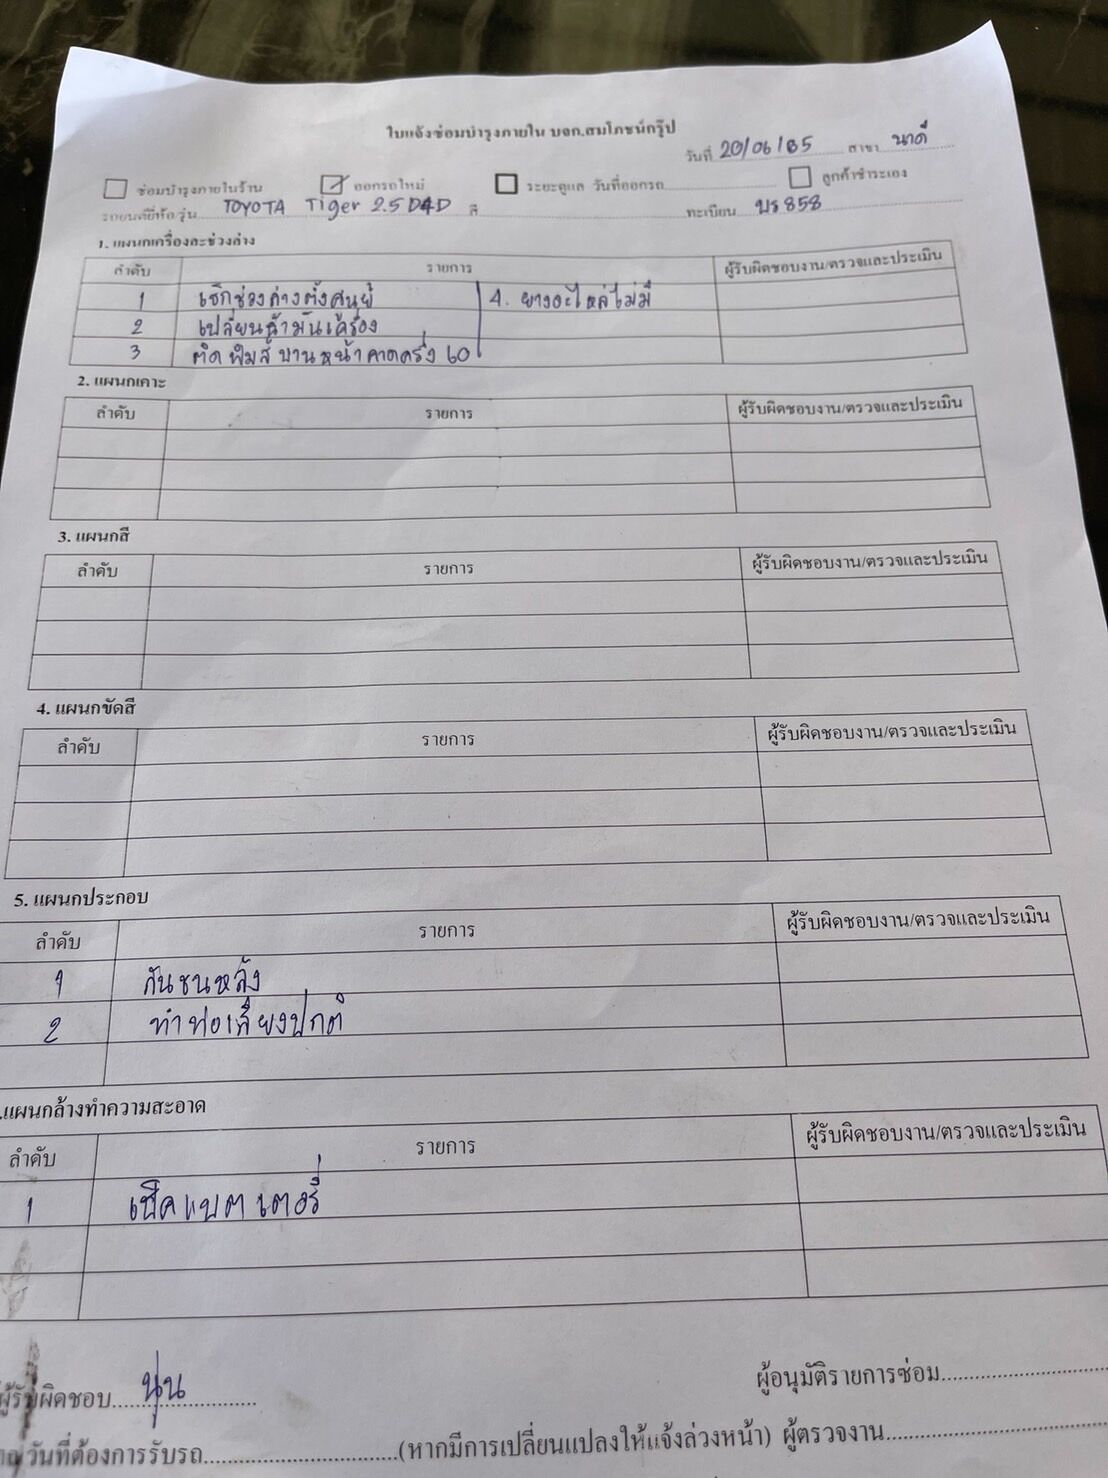 ใบแจ้งซ่อมบำรุงภายใน บจก.สมโภชน์กรุ๊ป
วันที่ 20/06/65 สาขา นาดี
ซ่อมบำรุงภายในร้าน ออกรถใหม่ ระยะดูแล วันที่ออกรถ ลูกค้าชำระเอง
รถยนต์ยี่ห้อ/รุ่น TOYOTA Tiger 2.5 D4D สี ทะเบียน บร 858
1. แผนกเครื่องละช่วงล่าง
ลำดับ รายการ ผู้รับผิดชอบงาน/ตรวจและประเมิน
1 เช็กช่วงล่างตั้งศูนย์ 4. ยางอะไหล่ไม่มี
2 เปลี่ยนน้ำมันเครื่อง
3 ติดฟิมส์ บานหน้าคาดครึ่ง 60
2. แผนกเคาะ
ลำดับ รายการ ผู้รับผิดชอบงาน/ตรวจและประเมิน
3. แผนกสี
ลำดับ รายการ ผู้รับผิดชอบงาน/ตรวจและประเมิน
4. แผนกขัดสี
ลำดับ รายการ ผู้รับผิดชอบงาน/ตรวจและประเมิน
5. แผนกประกอบ
ลำดับ รายการ ผู้รับผิดชอบงาน/ตรวจและประเมิน
1 กันชนหลัง
2 ทำท่อเสียงปกติ
.แผนกล้างทำความสะอาด
ลำดับ รายการ ผู้รับผิดชอบงาน/ตรวจและประเมิน
1 เช็คแบตเตอรี่
ผู้รับผิดชอบ นุ่น ผู้อนุมัติรายการซ่อม
วันที่ต้องการรับรถ (หากมีการเปลี่ยนแปลงให้แจ้งล่วงหน้า) ผู้ตรวจงาน